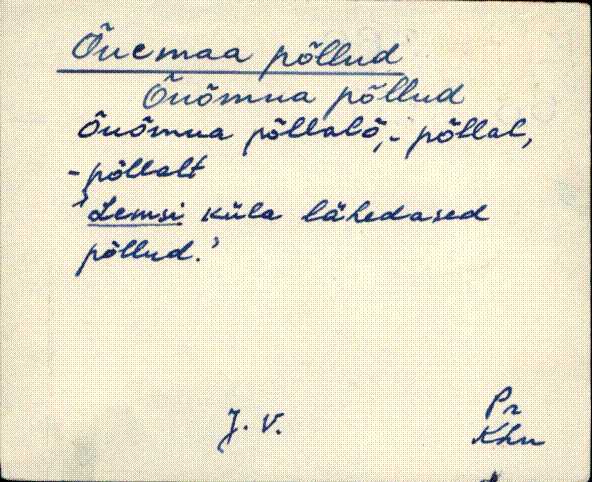 Õuemaa põllud
Õuõmua põllud
Õuõmua põllalõ, - põllal,
- põllalt
'Lemsi küla lähedased
põllud.'
J. V.
Pr
Khn